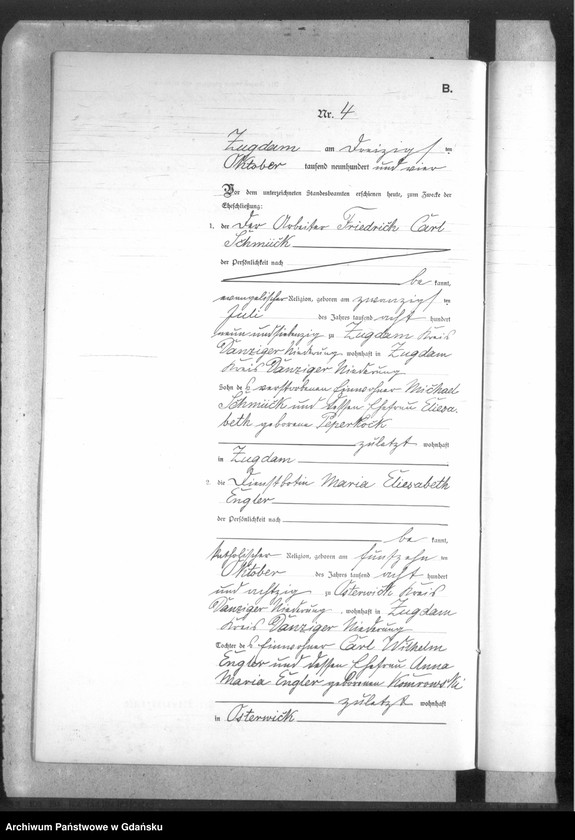 B.
Nr. 4
Zugdam am Dreizigsten
Oktober tausend neunhundert und vier
Vor dem unterzeichneten Standesbeamten erschienen heute, zum Zwecke der
Eheschließung:
1. der Der Arbeiter Friedrich Carl
Schmück
der Persönlichkeit nach
be kannt,
evangelischer Religion, geboren am zwanzigsten
Juli des Jahres tausend acht hundert
neun und siebenzig zu Zugdam Kreis
Danziger Niederung, wohnhaft in Zugdam
Kreis Danziger Niederung
Sohn des verstorbenen Einwohner Michael
Schmück und dessen Ehefrau Eliesa-
beth geborene Peperkock
zuletzt wohnhaft
in Zugdam
2. die Dienstbotin Maria Eliesabeth
Engler
der Persönlichkeit nach
be kannt,
katholischer Religion, geboren am fünfzehn ten
Oktober des Jahres tausend acht hundert
und achtzig zu Osterwick Kreis
Danziger Niederung, wohnhaft in Zugdam
Kreis Danziger Niederung
Tochter des Einwohner Carl Wilhelm
Engler und dessen Ehefrau Anna
Maria Engler geborenen Komrowski
zuletzt wohnhaft
in Osterwick
Archiwum Państwowe w Gdańsku